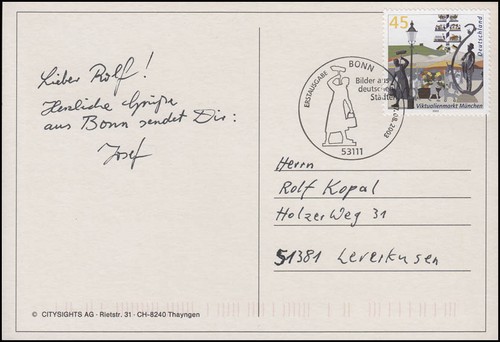 Lieber Rolf!
Herzliche Grüße
aus Bonn sendet Dir:
Josef
45
Deutschland
Viktualienmarkt München
ERSTAUSGABE BONN
Bilder aus
deutschen
Städten
.08.2003
53111
Herrn
Rolf Kopal
Holzer Weg 31
51381 Leverkusen
© CITYSIGHTS AG · Rietstr. 31 · CH-8240 Thayngen